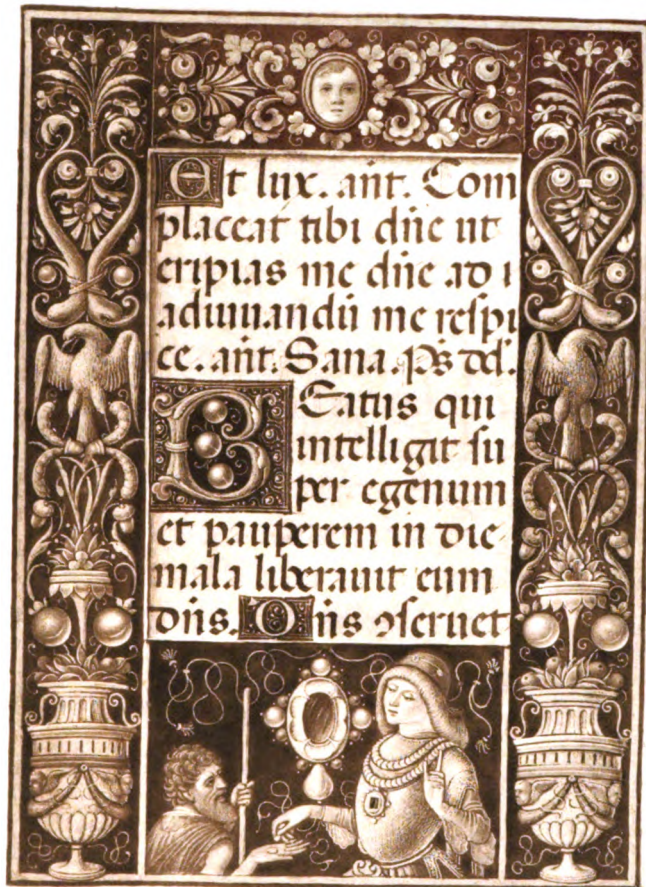 Et lux. an̄t. Com
placeat tibi dn̄e ut
eripias me dn̄e ad i
adiuuandū me respi
ce. an̄t. Sana. ps dd̄.
Beatus qui
intelligit su
per egenum
et pauperem in die
mala liberauit eum
dn̄s. Dn̄s ꝯseruet